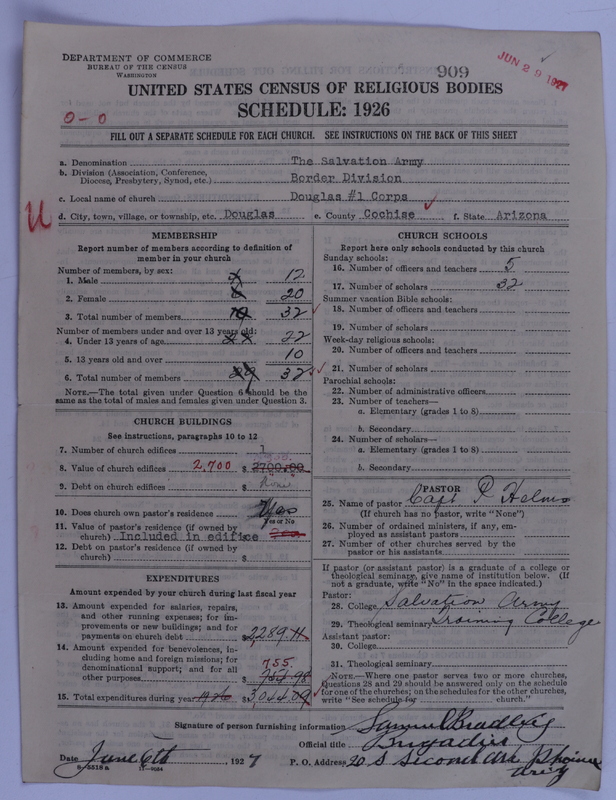 DEPARTMENT OF COMMERCE
BUREAU OF THE CENSUS
WASHINGTON
909
JUN 29 1927
UNITED STATES CENSUS OF RELIGIOUS BODIES
SCHEDULE: 1926
0-0
FILL OUT A SEPARATE SCHEDULE FOR EACH CHURCH. SEE INSTRUCTIONS ON THE BACK OF THIS SHEET
a. Denomination The Salvation Army
b. Division (Association, Conference, Diocese, Presbytery, Synod, etc.) Border Division
c. Local name of church Douglas #1 Corps
U
d. City, town, village, or township, etc. Douglas e. County Cochise f. State Arizona
MEMBERSHIP
Report number of members according to definition of
member in your church
Number of members, by sex:
1. Male 12
2. Female 20
3. Total number of members 32
Number of members under and over 13 years old:
4. Under 13 years of age 22
5. 13 years old and over 10
6. Total number of members 29 32
NOTE.—The total given under Question 6 should be
same as the total of males and females given under Question 3.
CHURCH BUILDINGS
See instructions, paragraphs 10 to 12
7. Number of church edifices 1
8. Value of church edifices 2,700 $ 2700.00
9. Debt on church edifices $ "None"
10. Does church own pastor's residence Yes
Yes or No
11. Value of pastor's residence (if owned by
church) Included in edifice
12. Debt on pastor's residence (if owned by
church) $
EXPENDITURES
Amount expended by your church during last fiscal year
13. Amount expended for salaries, repairs,
and other running expenses; for im-
provements or new buildings; and for
payments on church debt $ 2289.11
14. Amount expended for benevolences, in-
cluding home and foreign missions; for
denominational support; and for all
755.
other purposes $ 754.98
15. Total expenditures during year 1926 $ 3,044.09
CHURCH SCHOOLS
Report here only schools conducted by this church
Sunday schools:
16. Number of officers and teachers 5
17. Number of scholars 32
Summer vacation Bible schools:
18. Number of officers and teachers
19. Number of scholars
Week-day religious schools:
20. Number of officers and teachers
21. Number of scholars
Parochial schools:
22. Number of administrative officers
23. Number of teachers—
a. Elementary (grades 1 to 8)
b. Secondary
24. Number of scholars—
a. Elementary (grades 1 to 8)
b. Secondary
PASTOR
25. Name of pastor Capt P Helms
(If church has no pastor, write "None")
26. Number of ordained ministers, if any, em-
ployed as assistant pastors
27. Number of other churches served by the
pastor or his assistants
If pastor (or assistant pastor) is a graduate of a college or
theological seminary, give name of institution below. (If
not a graduate, write "No" in the space indicated.)
Pastor:
28. College Salvation Army
29. Theological seminary Training College
Assistant pastor:
30. College
31. Theological seminary
NOTE.—Where one pastor serves two or more churches,
Questions 28 and 29 should be answered only on the schedule
for one of the churches; on the schedules for the other churches,
write "See schedule for church."
Signature of person furnishing information Samuel Bradley
Official title Brigadier
Date June 6th, 1927 P. O. Address 20 S Second Ave Phoenix
Ariz
8-5518a 11-9664